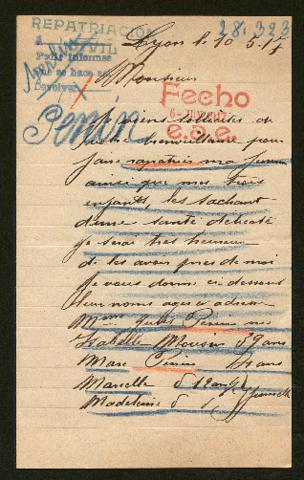 REPATRIACION
CIVIL
Para informes
se hace
28.323
Lyon le 10 5.17
Monsieur
Fecho
6-JUN 1917
e.a.e.
Penin
Je viens solliciter de
votre bienveillance pour
faire rapatrier ma femme
ainsi que mes trois
enfants, les sachant
d'une santé délicate
je serai très heureux
de les avoir près de moi
je vous donne ci dessous
leur noms ages et adresse
Mme Penin née
Isabelle Mousin 39 ans
Marc Penin ans
Marcelle d 12 ans jumelle
Madeleine d